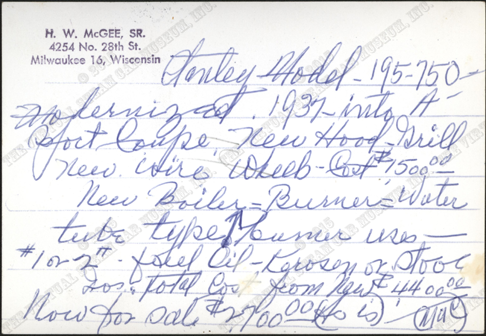 H. W. McGEE, SR.
4254 No. 28th St.
Milwaukee 16, Wisconsin
Stanley-Model-195-750-
Modernized. 1937-into A
Sport Coupe. New Hood-Grill
New Wire Wheels-Cost $1500.00-
New Boiler-Burner=Water
tube type Burner uses-
#1 or 2 - fuel Oil-Kerosen or Stove
Gas. Total Cost from New $4400.00
Now for sale $